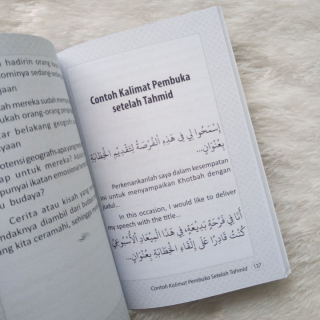 hadirin orang
ominya sedang
yaan
kah mereka sudah
ukah orang-orang
ar belakang
yaan
otensi geografis apa yang
up untuk mereka? Apa
punyai ikatan emosional
u budaya?
Cerita atau kisah yang
ndaknya diambil dari
g kita ceramahi, sehingga
Contoh Kalimat Pembuka
setelah Tahmid
اِسْمَحُوا لِي فِي هَذِهِ الْفُرْصَةِ لِتَقْدِيْمِ الْخَطَابَةِ
بِعُنْوَانِ...
Perkenankanlah saya dalam kesempatan
ini untuk menyampaikan Khotbah dengan
judul...
In this occasion, I would like to deliver
my speech with the title...
أَنَا فِي فُرْحَةٍ بَدِيْعَةٍ فِي هَذَا الْمِيْعَادِ الْأُسْبُوْعِيِّ
كُنْتُ قَادِرًا عَلَى إِلْقَاءِ الْخَطَابَةِ بِعُنْوَانِ...
Contoh Kalimat Pembuka Setelah Tahmid 137